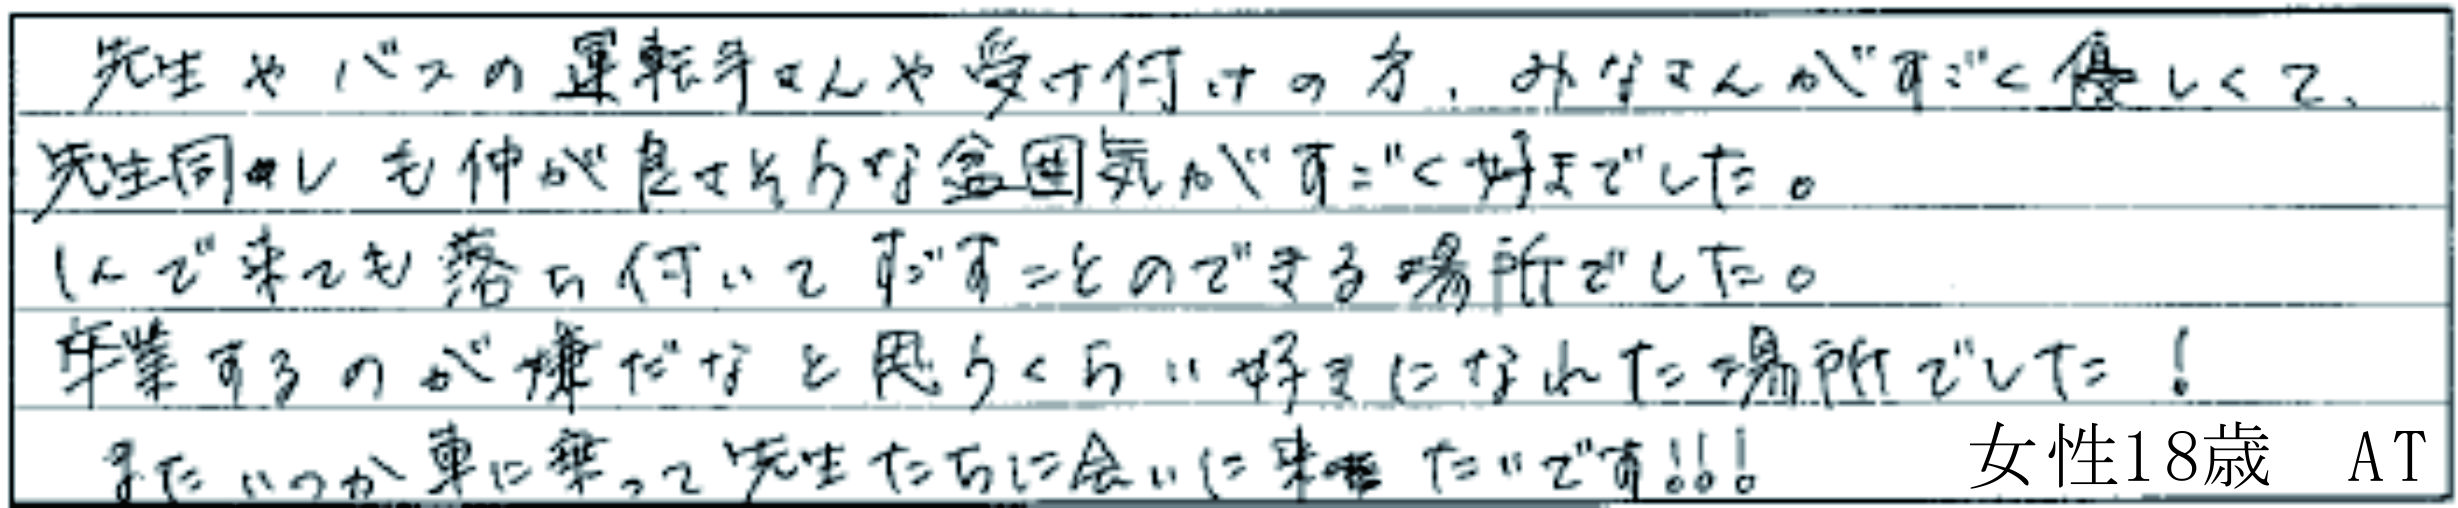 先生やバスの運転手さんや受け付けの方、みなさんがすごく優しくて、
先生同しも仲が良さそうな雰囲気がすごく好きでした。
1人で来ても落ち付いてすごすことのできる場所でした。
卒業するのが嫌だなと思うくらい好きになれた場所でした!
またいつか車に乗って先生たちに会いに来たいです!!!
女性18歳 AT